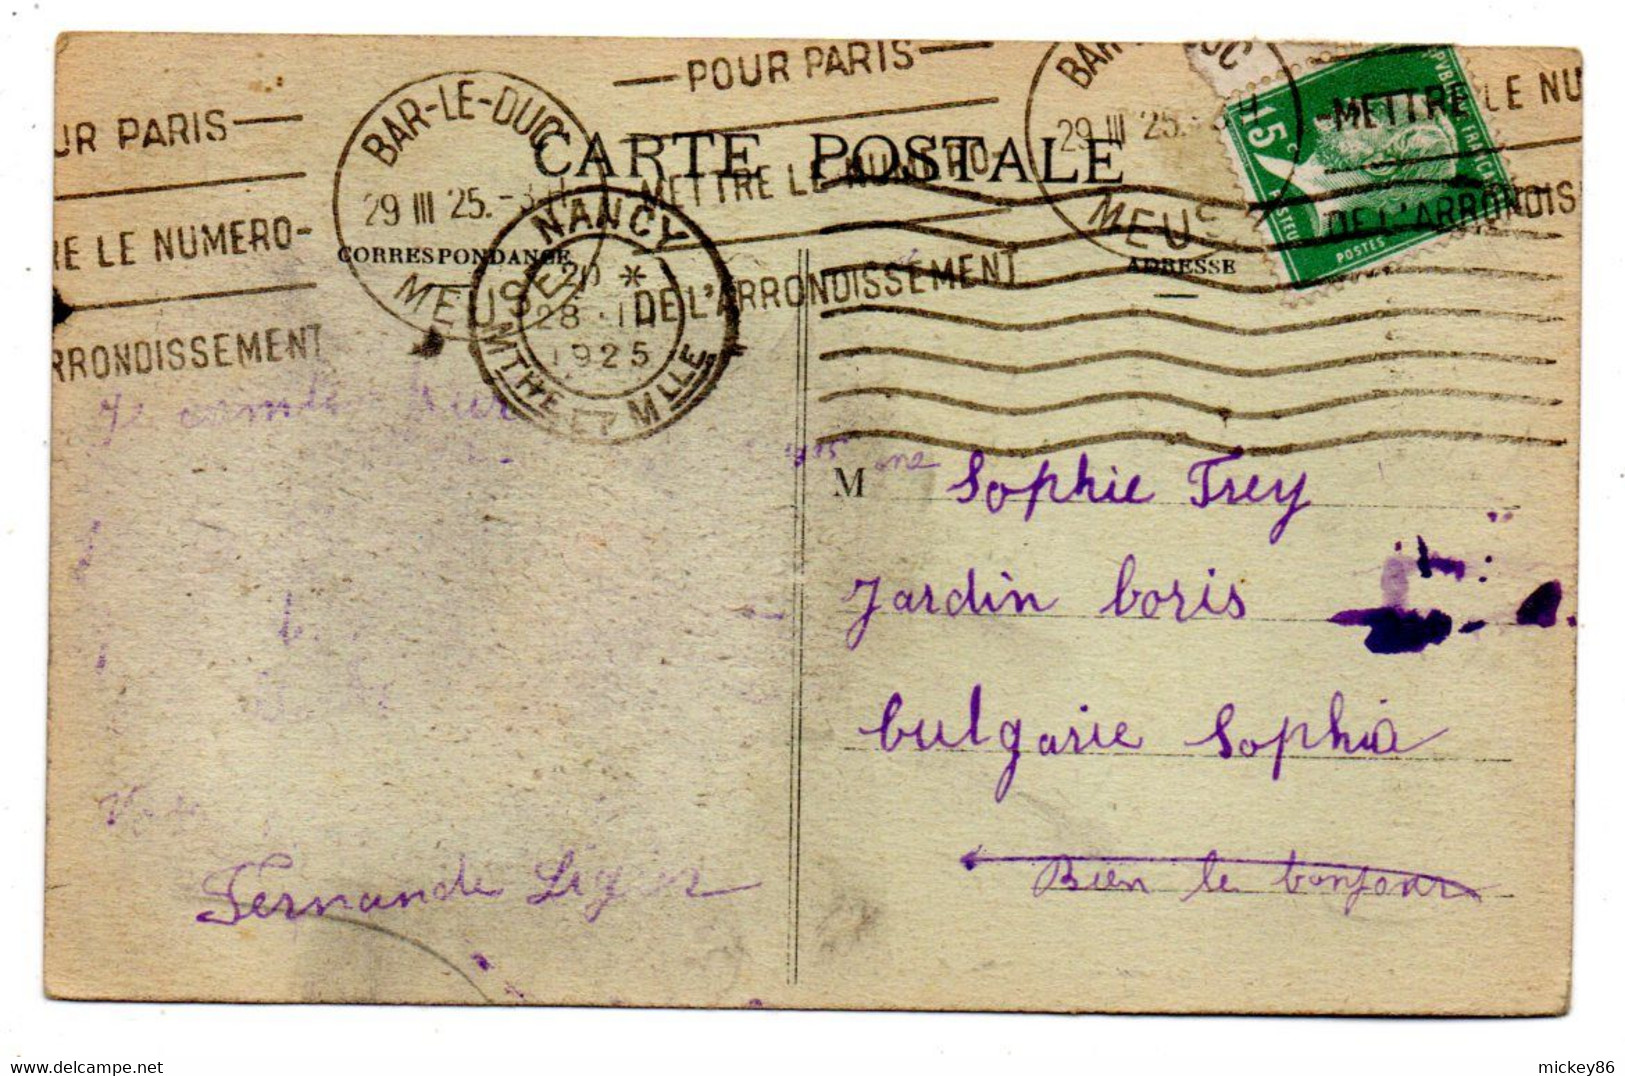 POUR PARIS
METTRE LE NUMERO
DE L'ARRONDISSEMENT
UR PARIS
RE LE NUMERO-
RRONDISSEMENT
BAR-LE-DUC
29 III 25.
MEUSE
CARTE POSTALE
CORRESPONDANCE
ADRESSE
BAR
29 III 25.
MEUSE
15c
REPUBLIQUE FRANÇAISE
PASTEUR
POSTES
-METTRE LE NU
DE L'ARRONDIS
NANCY
20 *
28 - III
1925
MTHE ET MLLE
M me Sophie Frey
Jardin boris
bulgarie Sophia
Bien le bonjour
Fernande
mickey86